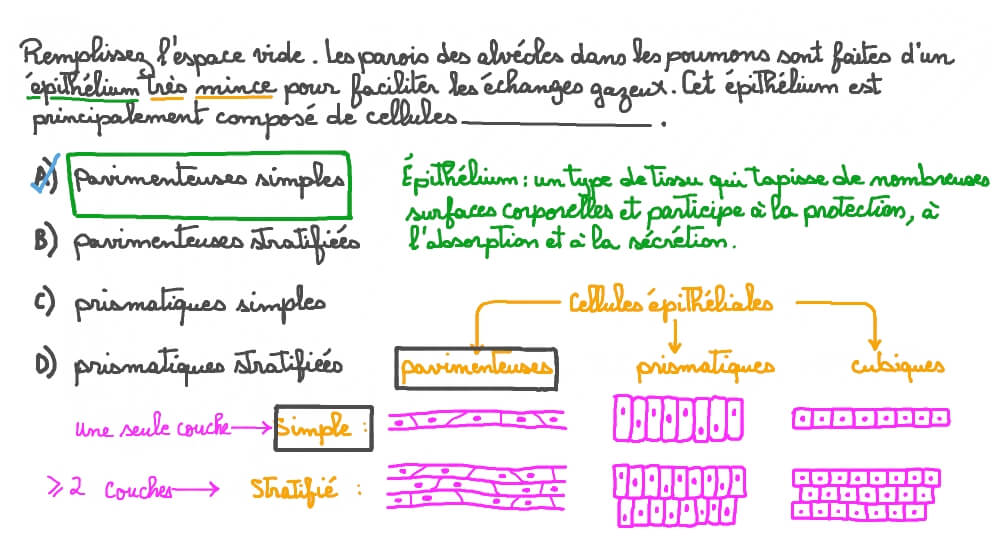 Remplissez l'espace vide. Les parois des alvéoles dans les poumons sont faites d'un
épithélium très mince pour faciliter les échanges gazeux. Cet épithélium est
principalement composé de cellules ____________.
A) pavimenteuses simples
Épithélium : un type de tissu qui tapisse de nombreuses
surfaces corporelles et participe à la protection, à
l'absorption et à la sécrétion.
B) pavimenteuses stratifiées
C) prismatiques simples
D) prismatiques stratifiées
Cellules épithéliales
pavimenteuses prismatiques cubiques
une seule couche → Simple :
⩾ 2 couches → Stratifié :